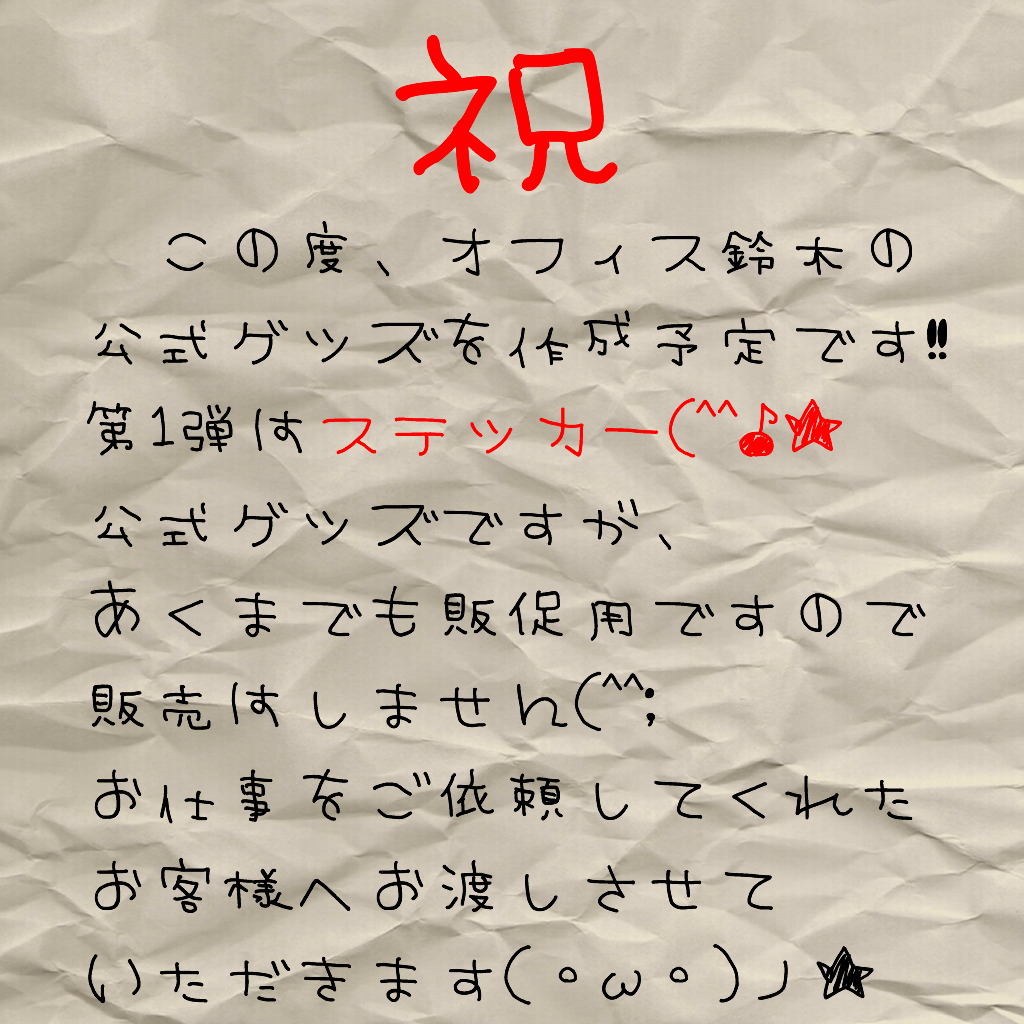 祝
この度、オフィス鈴木の
公式グッズを作成予定です‼
第1弾はステッカー(^^♪★
公式グッズですが、
あくまでも販促用ですので
販売はしません(^^;
お仕事をご依頼してくれた
お客様へお渡しさせて
いただきます(°ω°)ノ★